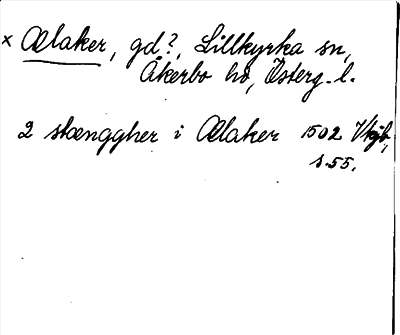 × Ælaker, gd?, Lillkyrka sn,
Åkerbo hd, Österg. l.
2 stænggher i Ælaker 1502 Vkjb,
s. 55.